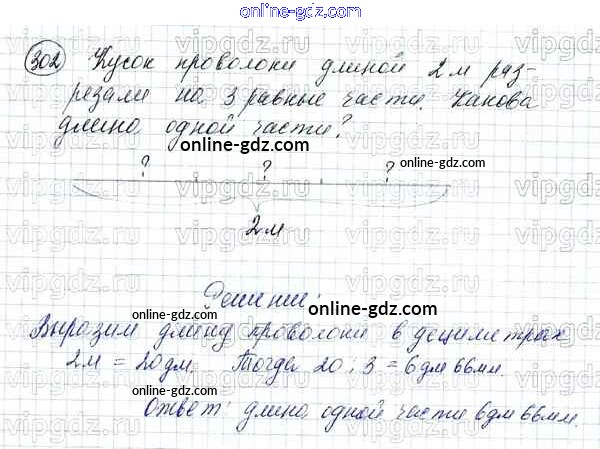 online-gdz.com
302 Кусок проволоки длиной 2 м раз-
резали на 3 равные части. Какова
длина одной части?
online-gdz.com
? ? ? online-gdz.com
2 м
Решение:
online-gdz.com
Выразим длину проволоки в дециметрах
2 м = 20 дм. Тогда 20 : 3 = 6 дм 66 мм.
online-gdz.com
Ответ: длина одной части 6 дм 66 мм.
online-gdz.com
vipgdz.ru